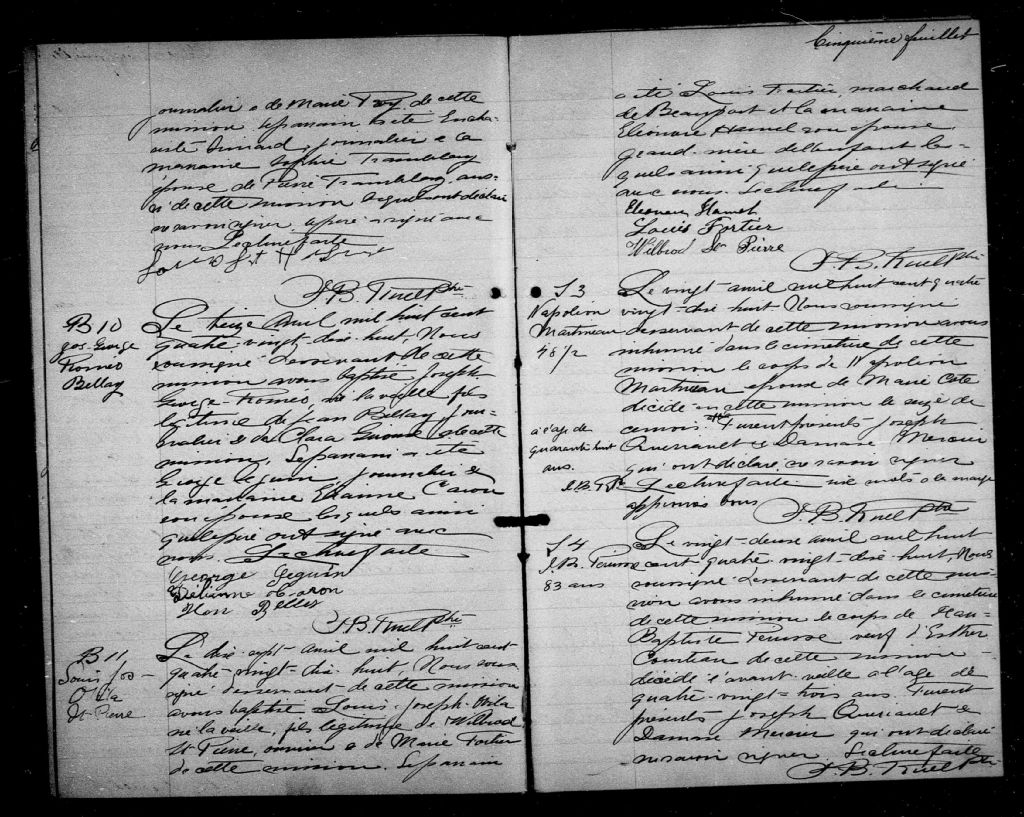 journalier & de Marie Roy de cette
mission le parrain a été Encha-
journalier & la
marraine Sophie Tremblay
épouse de Tremblay aus-
si de cette mission lesquels ont déclaré
ne savoir signer le père a signé avec
nous. Lecture faite
J. B. Ruel Ptre
B 10
Jos. George
Roméo
Bellay
Le treize avril mil huit cent
quatre vingt-dix-huit, Nous
soussigné desservant de cette
mission avons baptisé Joseph
George Roméo né la veille fils
légitime de Jean Bellay jour-
nalier & de Clara de cette
mission. Le parrain a été
George Seguin journalier &
la marraine Caron
son épouse lesquels ainsi
que le père ont signé avec
nous. Lecture faite
George Seguin
Caron
J. B. Ruel Ptre
B 11
Louis Jos-
St-Pierre
Le dix-sept avril mil huit cent
quatre-vingt-dix-huit, Nous sous-
signé desservant de cette mission
avons baptisé Louis-Joseph
né la veille, fils légitime de Wilbrod
St-Pierre, ouvrier & de Marie Fortier
de cette mission. Le parrain
Cinquième feuillet
a été Louis Fortier, marchand
de Beauport et la marraine
Eléonore Hamel son épouse
grand-mère de l'enfant les-
quels ainsi que le père ont signé
avec nous. Lecture faite
Eleonore Hamel
Louis Fortier
Wilbrod St Pierre
J. B. Ruel Ptre
S 3
Napoléon
Martineau
48 1/2
Le vingt avril mil huit cent quatre
vingt-dix-huit. Nous soussigné
desservant de cette mission avons
inhumé dans le cimetière de cette
mission le corps de Napoléon
Martineau époux de Marie Coté
décédé en cette mission le seize de
ce mois. Furent présents Joseph
& Damase Mercier
qui ont déclaré ne savoir signer
Lecture faite mots à la marge
approuvés bons
à l'âge de
quarante huit
ans.
J. B. R. Ptre
J. B. Ruel Ptre
S 4
J. B.
83 ans
Le vingt-deux avril mil huit
cent quatre-vingt-dix-huit, Nous
soussigné desservant de cette mis-
sion avons inhumé dans le cimetière
de cette mission le corps de Jean-
Baptiste veuf d'Esther
de cette mission
décédé l'avant-veille à l'âge de
quatre-vingt-trois ans. Furent
présents Joseph &
Damase Mercier qui ont déclaré
ne savoir signer Lecture faite
J. B. Ruel Ptre